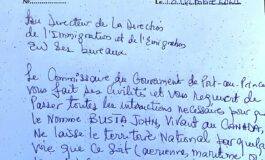 No
Au Directeur de La Direction
de l'Immigration et de l'Emigration
En ses bureaux
Le Commissaire du Gouvernement de Port-au-Prince
vous fait ses Civilités et vous requiert de
Passer toutes les instructions necessaires pour que
le Nommé BUSTA JOHN, Vivant au CANADA,
Ne laisse le territoire National par quelque
voie que ce soit (aerienne, maritime